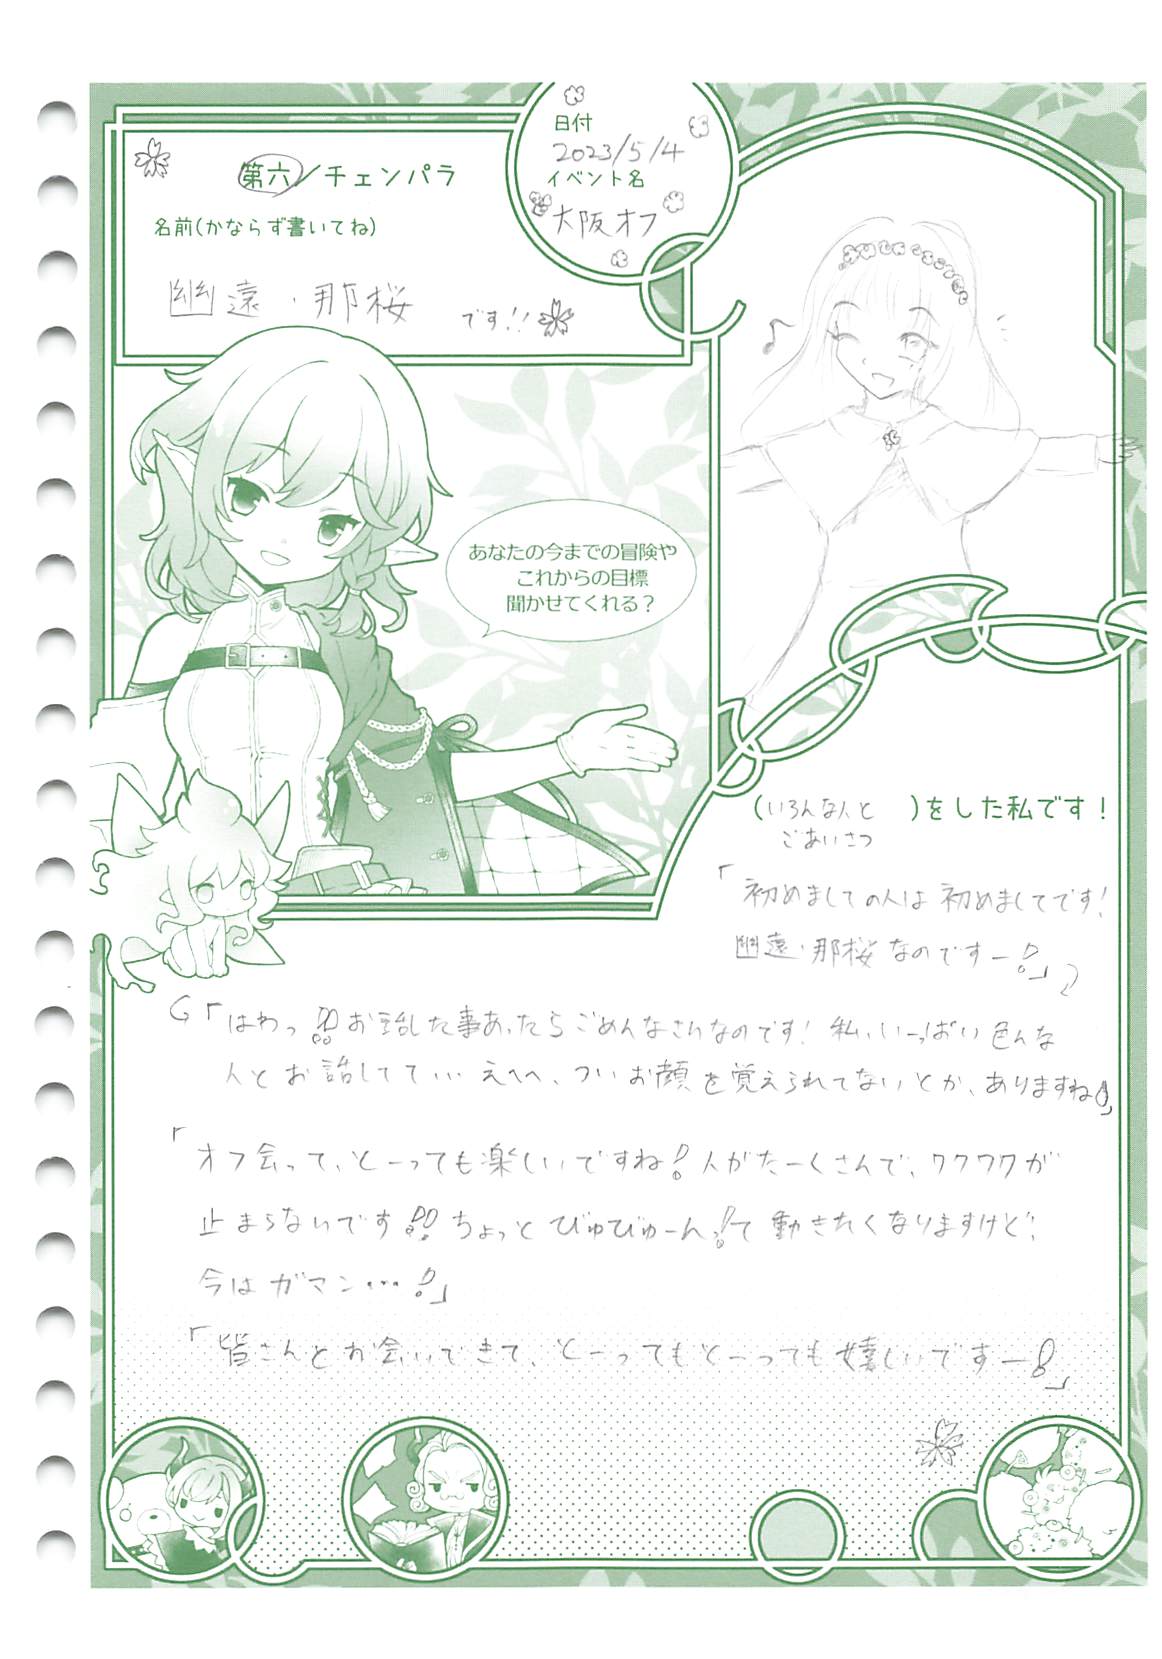 日付
2023/5/4
イベント名
大阪オフ
第六/チェンパラ
名前(かならず書いてね)
幽遠・那桜 です!!
あなたの今までの冒険や
これからの目標
聞かせてくれる?
(いろんな人と
ごあいさつ
)をした私です!
「初めましての人は初めましてです!
幽遠・那桜なのですー!」
「はわっ!!お話した事あったらごめんなさいなのです!私、いっぱい色んな
人とお話してて…えへへ、ついお顔を覚えられてないとか、ありますね」
「オフ会って、とーっても楽しいですね!人がたーくさんで、ワクワクが
止まらないです!!ちょっとびゅびゅーん!て動きたくなりますけど、
今はガマン…!」
「皆さんとお会いできて、とーってもとーっても嬉しいですー!」